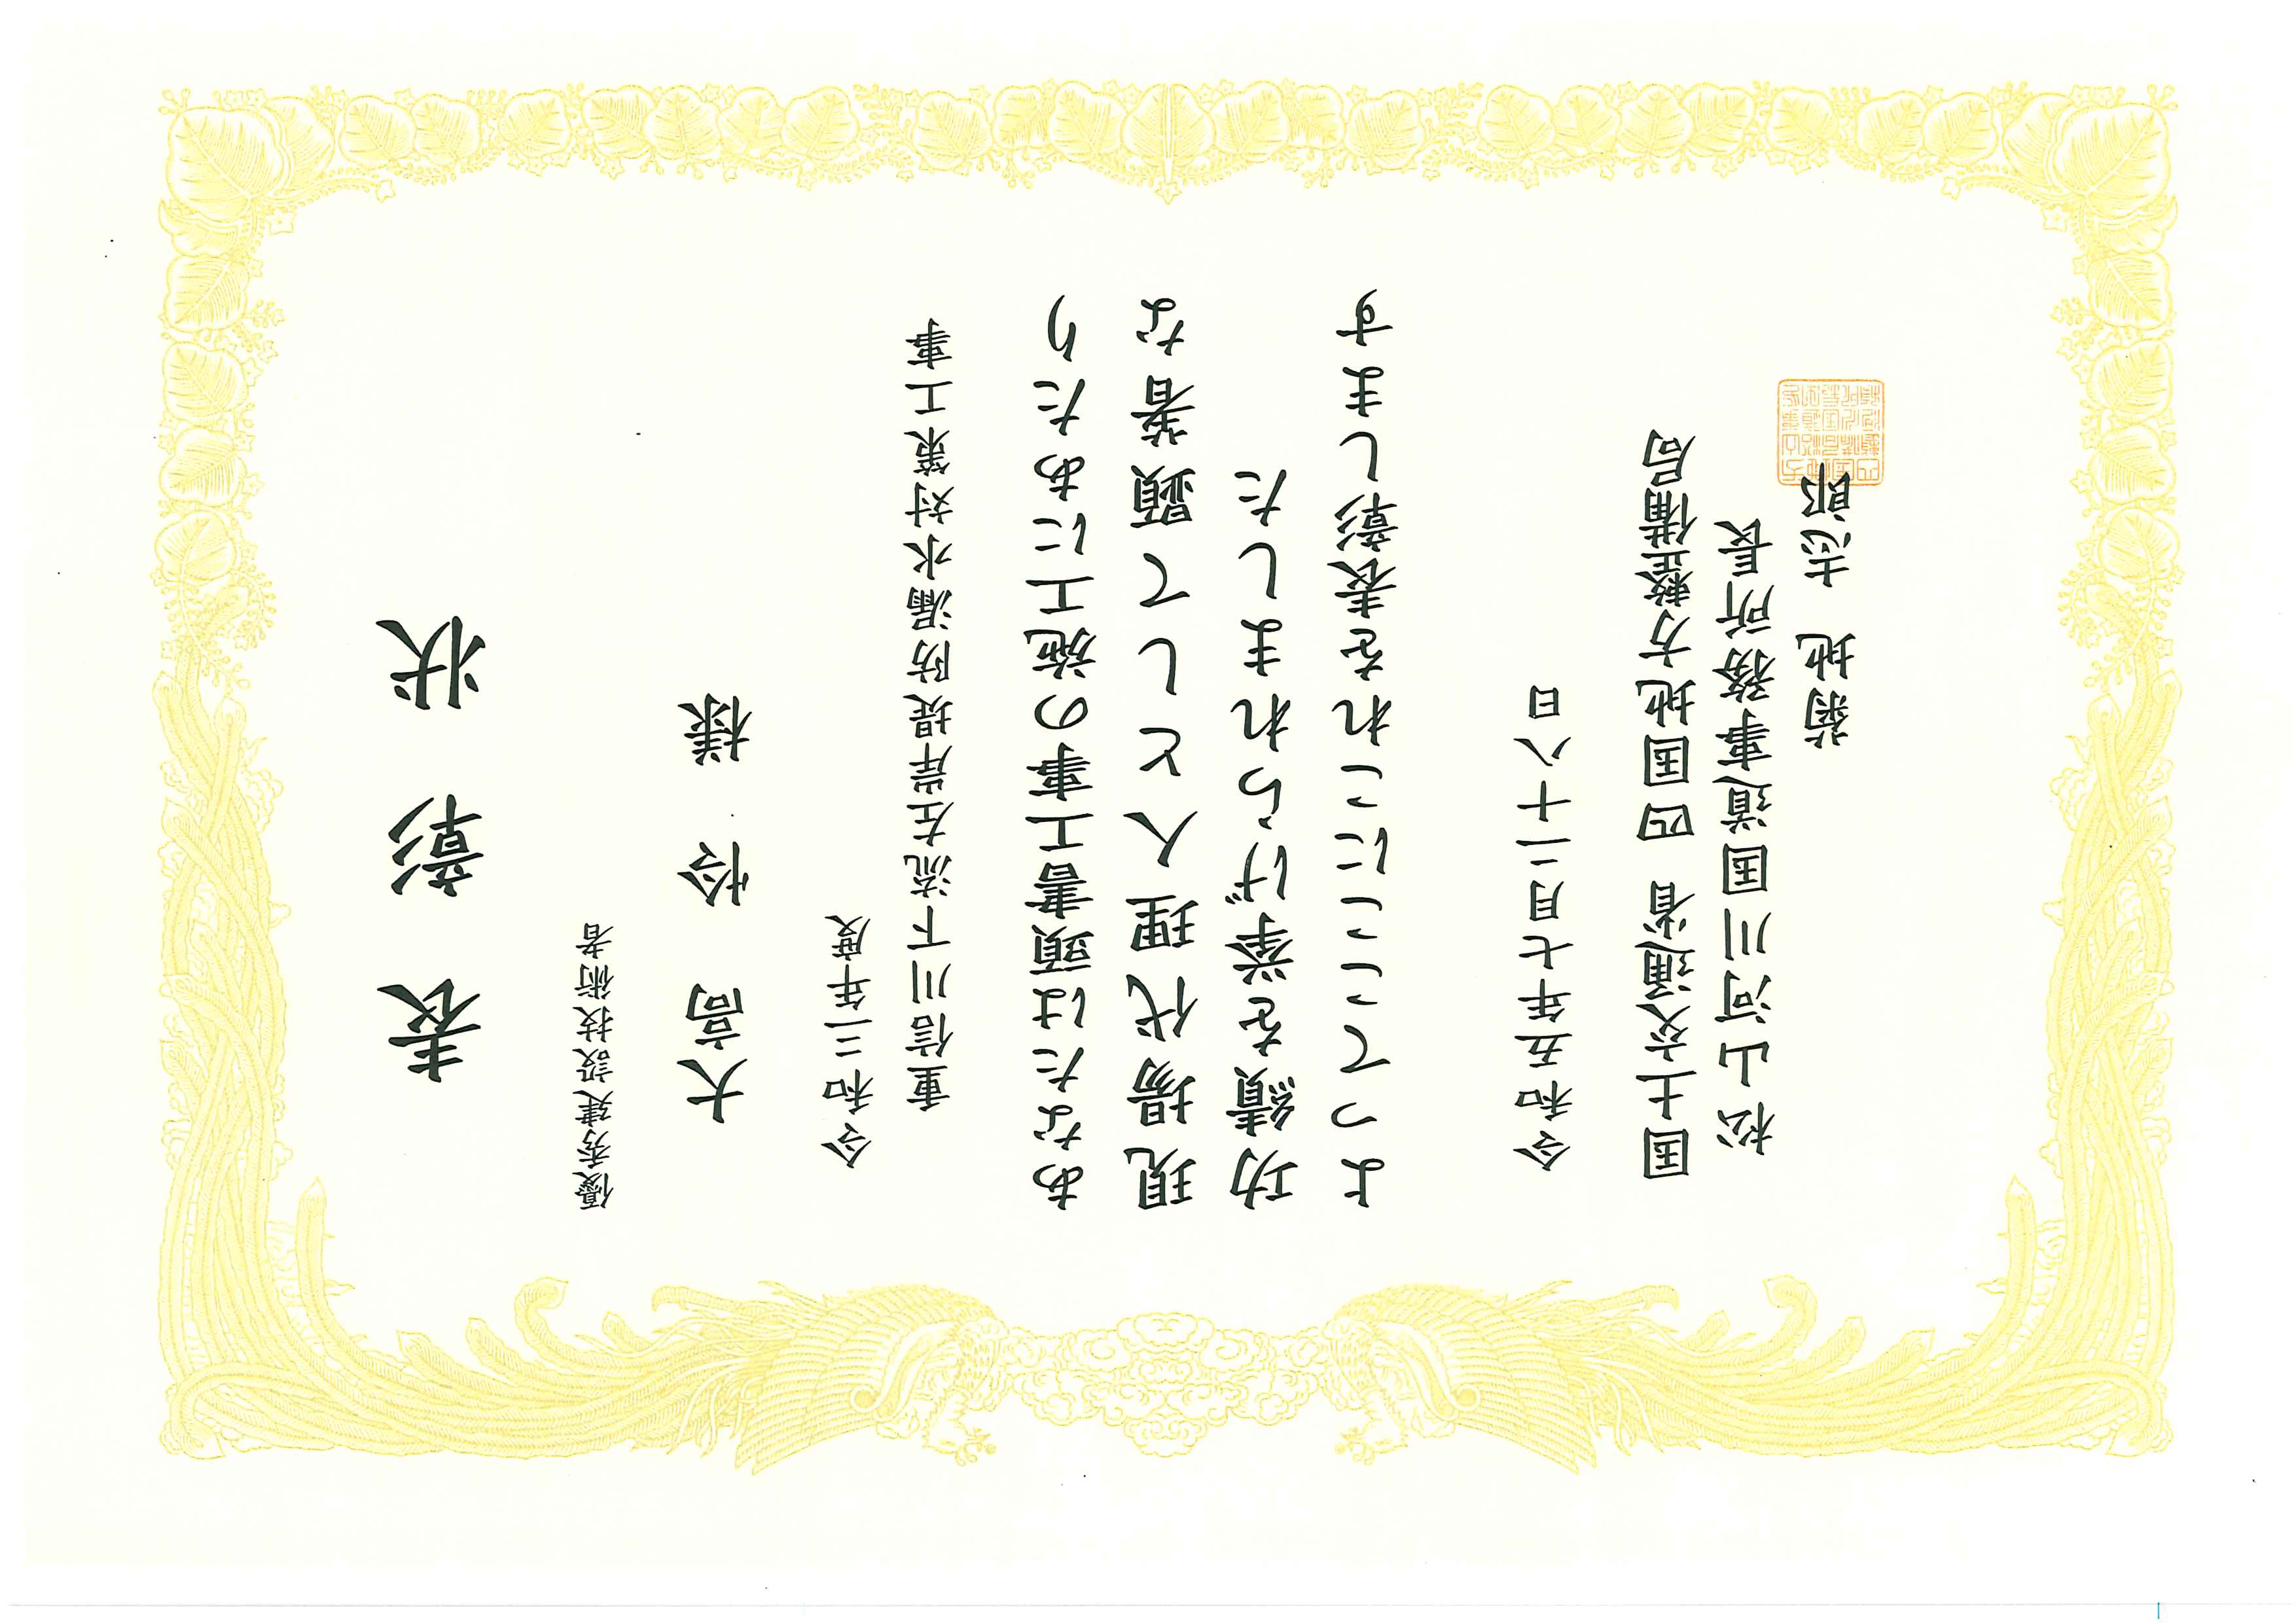 表彰状
優秀建設技術者
大高 怜 様
令和三年度
重信川下流左岸堤防漏水対策工事
あなたは頭書工事の施工にあたり
現場代理人として顕著な
功績を挙げられました
よってここにこれを表彰します
令和五年七月二十八日
国土交通省 四国地方整備局
松山河川国道事務所長
菊地 志郎